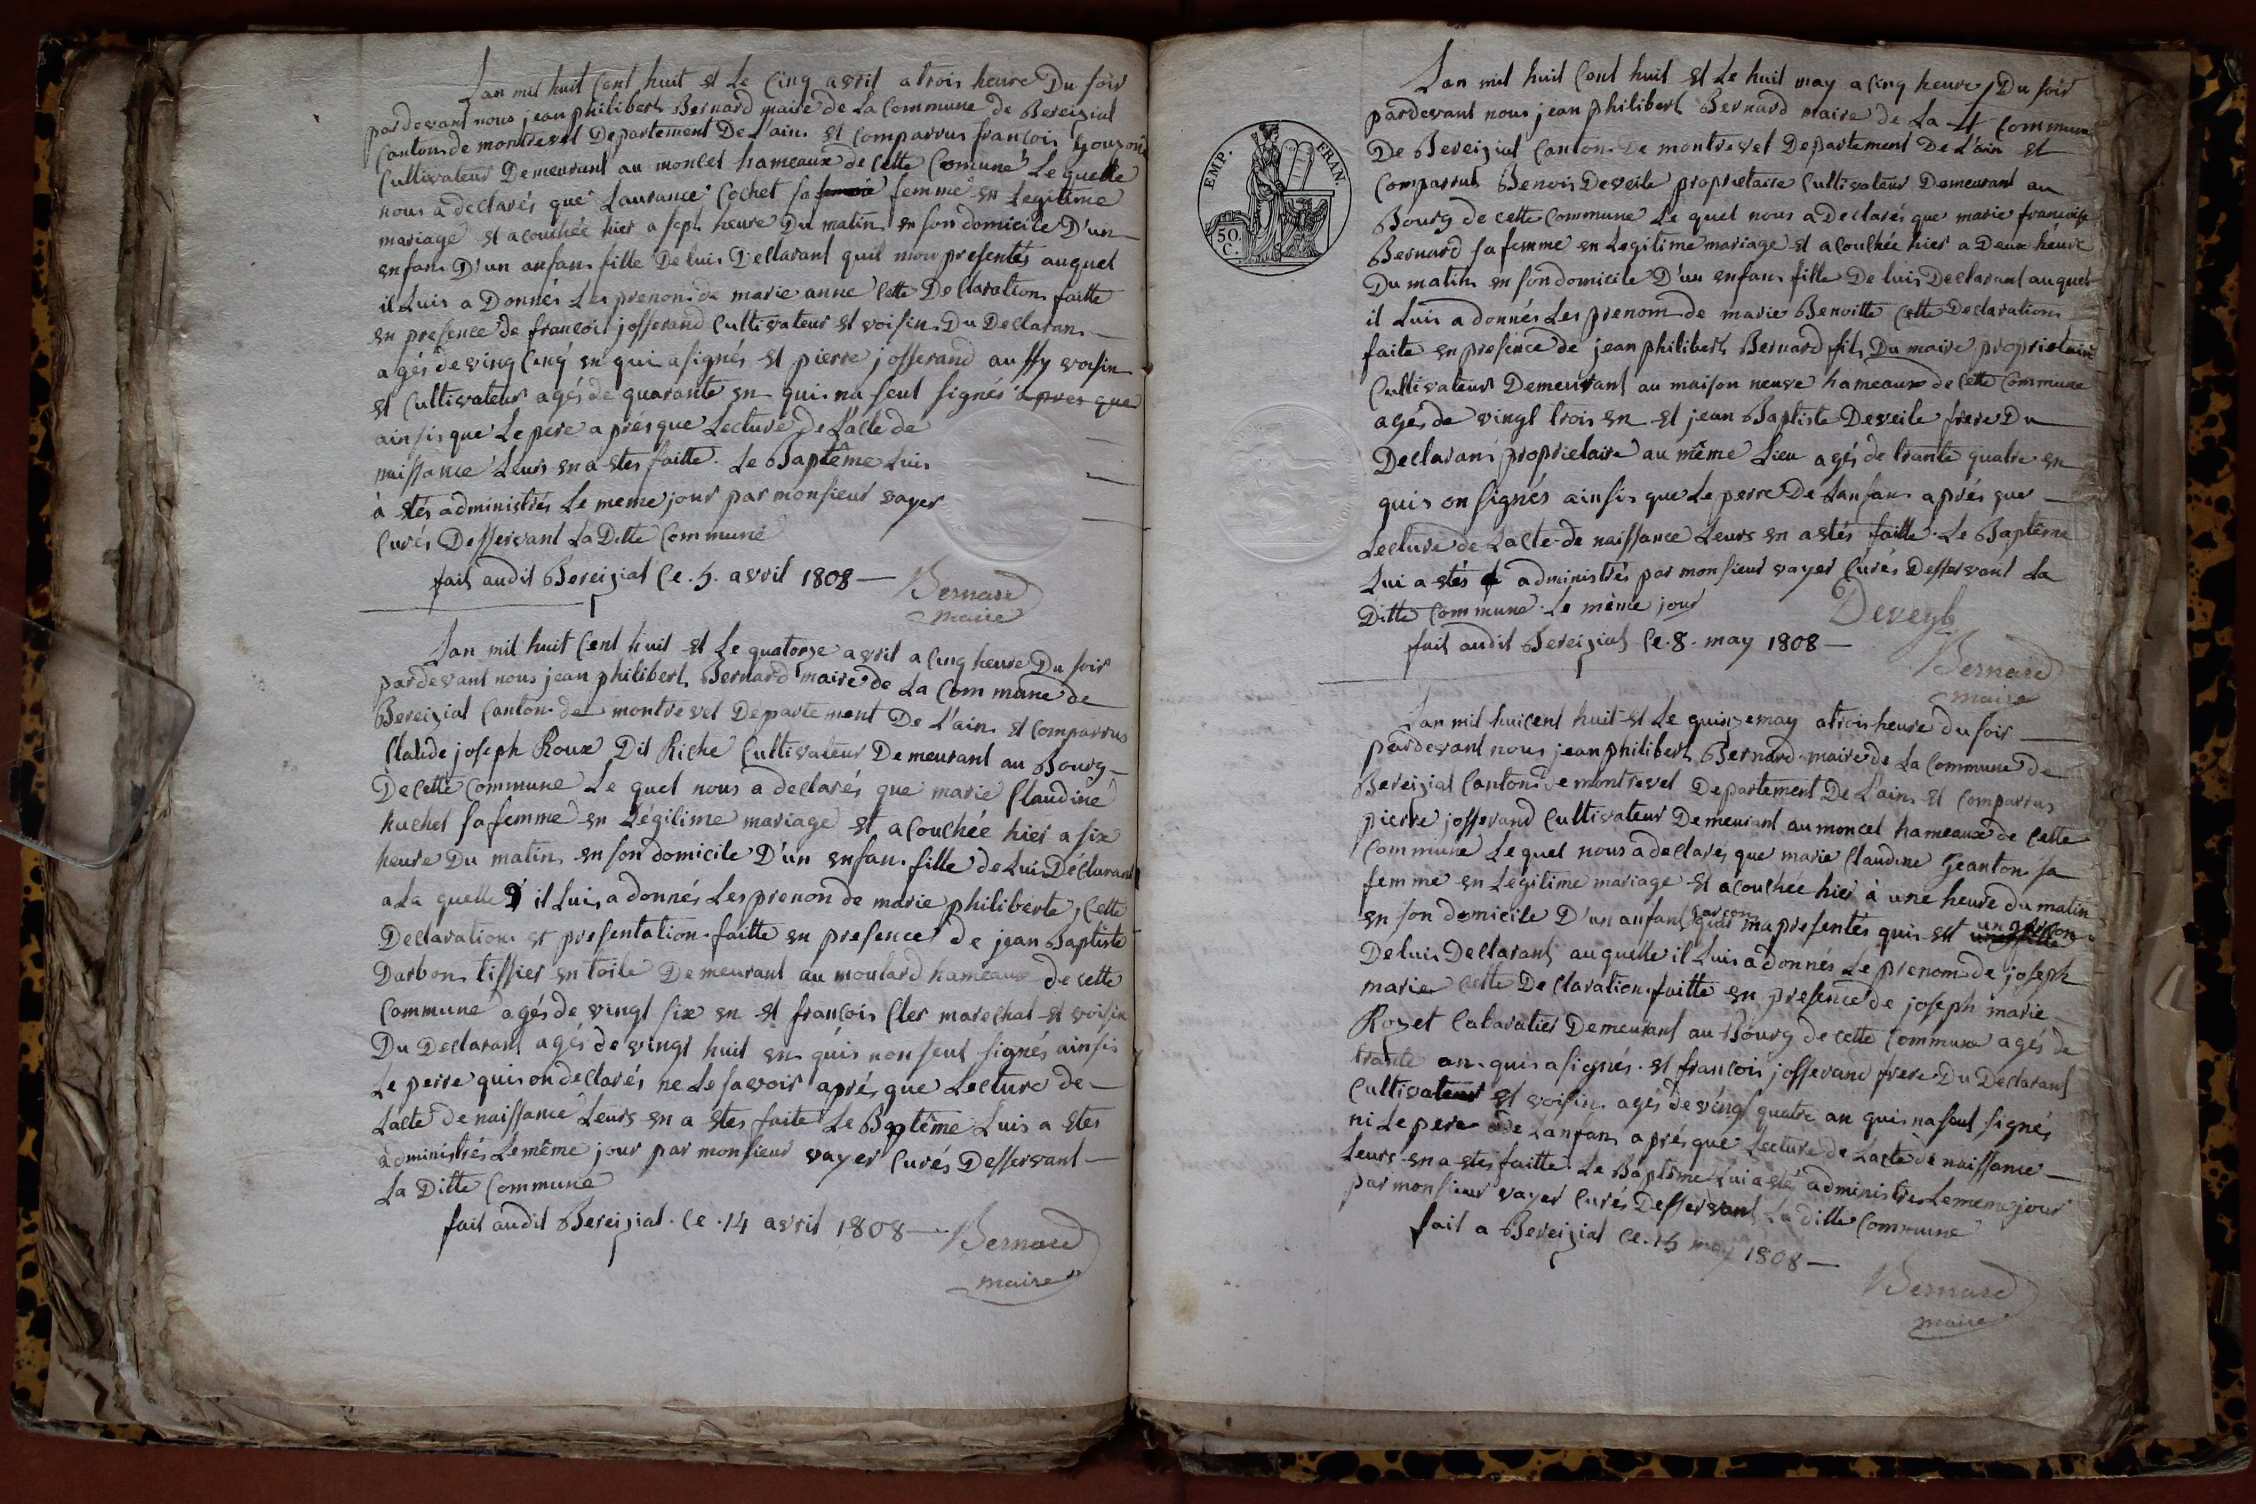 Lan mil huit Cent huit et Le Cinq avril a trois heure Du soir
pardevant nous jean philibert Bernard maire de La Commune de Bereizial
Canton de montrevel Departement De Lain et Comparrus francois
Cultivateur Demeurant au moncel hameaux de Cette Comune Le quelle
nous a declarés que Laurance Cochet sa femme en Legitime
mariage et acouchée hier a sept heure Du matin en son domicile D'un
enfan D'un anfan fille De luis Declarant quil nou presentés auquel
il Luis a Donnés Les prenon de marie anne Cette Declaration faitte
en presence de francois josserand Cultivateur et voisin Du Declaran
agés de ving Cinq en qui a signés et pierre josserand aussy voisin
et Cultivateur agés de quarante en qui na seut signés apres que
ainsis que Le pere aprés que Lecture de Lacte de
naissance Leurs en a etes faitte. Le Baptême Luis
à etés administrés Le meme jour par monsieur vayer
Curés Desservant La Ditte Commune
fait audit Bereizial Ce. 5. avril 1808
Bernard
maire
Lan mil huit Cent huit et Le quatorze avril a Cinq heure Du soir
pardevant nous jean philibert Bernard maire de La Commune de
Bereizial Canton de montrevel Departement De L'ain et Comparrus
Claude joseph Roux Dit Riche Cultivateur Demeurant au Bourg
De Cette Commune Le quel nous a declarés que marie Claudine
huchet sa femme en Légitime mariage et acouchée hier a six
heure Du matin en son domicile D'un enfan fille de Lui Déclarant
a La quelle il Luis a donnés Les prenon de marie philiberte, Cette
Declaration et presentation faitte en presence de jean Baptiste
Darbon tissier en toile Demeurant au moulard hameaux de cette
Commune agés de vingt six en et francois Cler marechal et voisin
Du Declarant agés de vingt huit en quis non seut signés ainsis
Le perre quis on declarés ne Le savoir aprés que Lecture de
Lacte de naissance Leurs en a etes faite Le Baptême Luis a etes
administrés Le même jour par monsieur vayer Curés Desservant
La Ditte Commune
fait audit Bereizial. Ce. 14 avril 1808
Bernard
maire
EMP. FRAN.
50 C.
Lan mil huit Cent huit et Le huit may a Cinq heure Du soir
pardevant nous jean philibert Bernard maire de La Commune
De Bereizial Canton De montrevel Departement De L'ain et
Comparrut Benois Deveile proprietaire Cultivateur Demeurant au
Bourg de cette Commune Le quel nous a declarés que marie francoise
Bernard sa femme en Legitime mariage et acouchée hier a Deux heure
Du matin en son domicile D'un enfan fille De luis Declarant auquel
il Luis a donnés Les prenom de marie Benoitte Cette Declaration
faite en presence de jean philibert Bernard fils Du maire proprietaire
Cultivateur Demeurant au maison neuve hameaux de Cette Commune
agés de vingt trois en et jean Baptiste Deveile frere Du
Declaran proprietaire au même Lieu agés de trante quatre en
quis on signés ainsis que Le perre De Lanfan aprés que
Lecture de Lacte de naissance Leurs en a etés faitte. Le Baptême
Lui a etés administrés par monsieur vayer Curés Desservant La
Ditte Commune. Le même jour
Deveyle
fait audit Bereizial Ce. 8. may 1808
Bernard
maire
Lan mil huicent huit et Le quinze may a trois heure du soir
pardevant nous jean philibert Bernard maire de La Commune de
Bereizial Canton de montrevel Departement De Lain et Comparrus
pierre josserand Cultivateur Demeurant au moncel hameaux de Cette
Commune Le quel nous a declarés que marie Claudine Jeanton sa
femme en Legitime mariage et acouchée hier à une heure du matin
en son domicile D'un anfan garcon quis ma presentés quis est un garcon
De luis Declarant auquelle il Luis a donnés Le prenom de joseph
marie Cette Declaration faitte en presence de joseph marie
Royet Cabaratier Demeurant au Bourg de cette Commune agés de
trante an quis a signés. et francois josserand frere Du Declarant
Cultivateur et voisin agés de vingt quatre an quis na seut signés
ni Le pere de Lanfan aprés que Lecture de Lacte de naissance
Leurs en a etes faitte. Le Baptême Lui a etés administres Le meme jour
par monsieur vayer Curés Desservant La ditte Commune
fait a Bereizial Ce. 15 may 1808
Bernard
maire